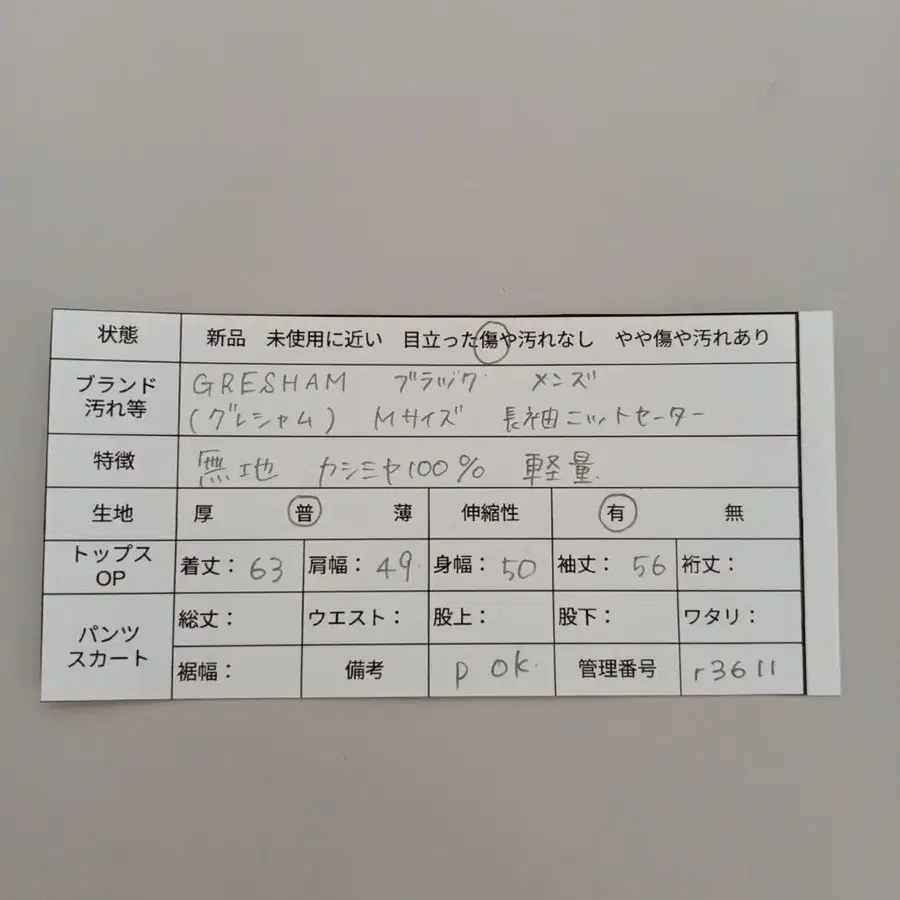 状態 新品 未使用に近い 目立った傷や汚れなし やや傷や汚れあり
ブランド 汚れ等 GRESHAM ブラック メンズ
(グレシャム) Mサイズ 長袖ニットセーター
特徴 無地 カシミヤ100% 軽量
生地 厚 普 薄 伸縮性 有 無
トップス OP 着丈：63 肩幅：49 身幅：50 袖丈：56 裄丈：
パンツ スカート 総丈： ウエスト： 股上： 股下： ワタリ：
裾幅： 備考 p ok. 管理番号 r3611